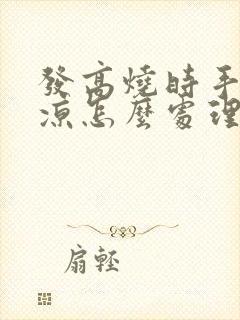 發高燒時手
涼怎麼處理
扇輕